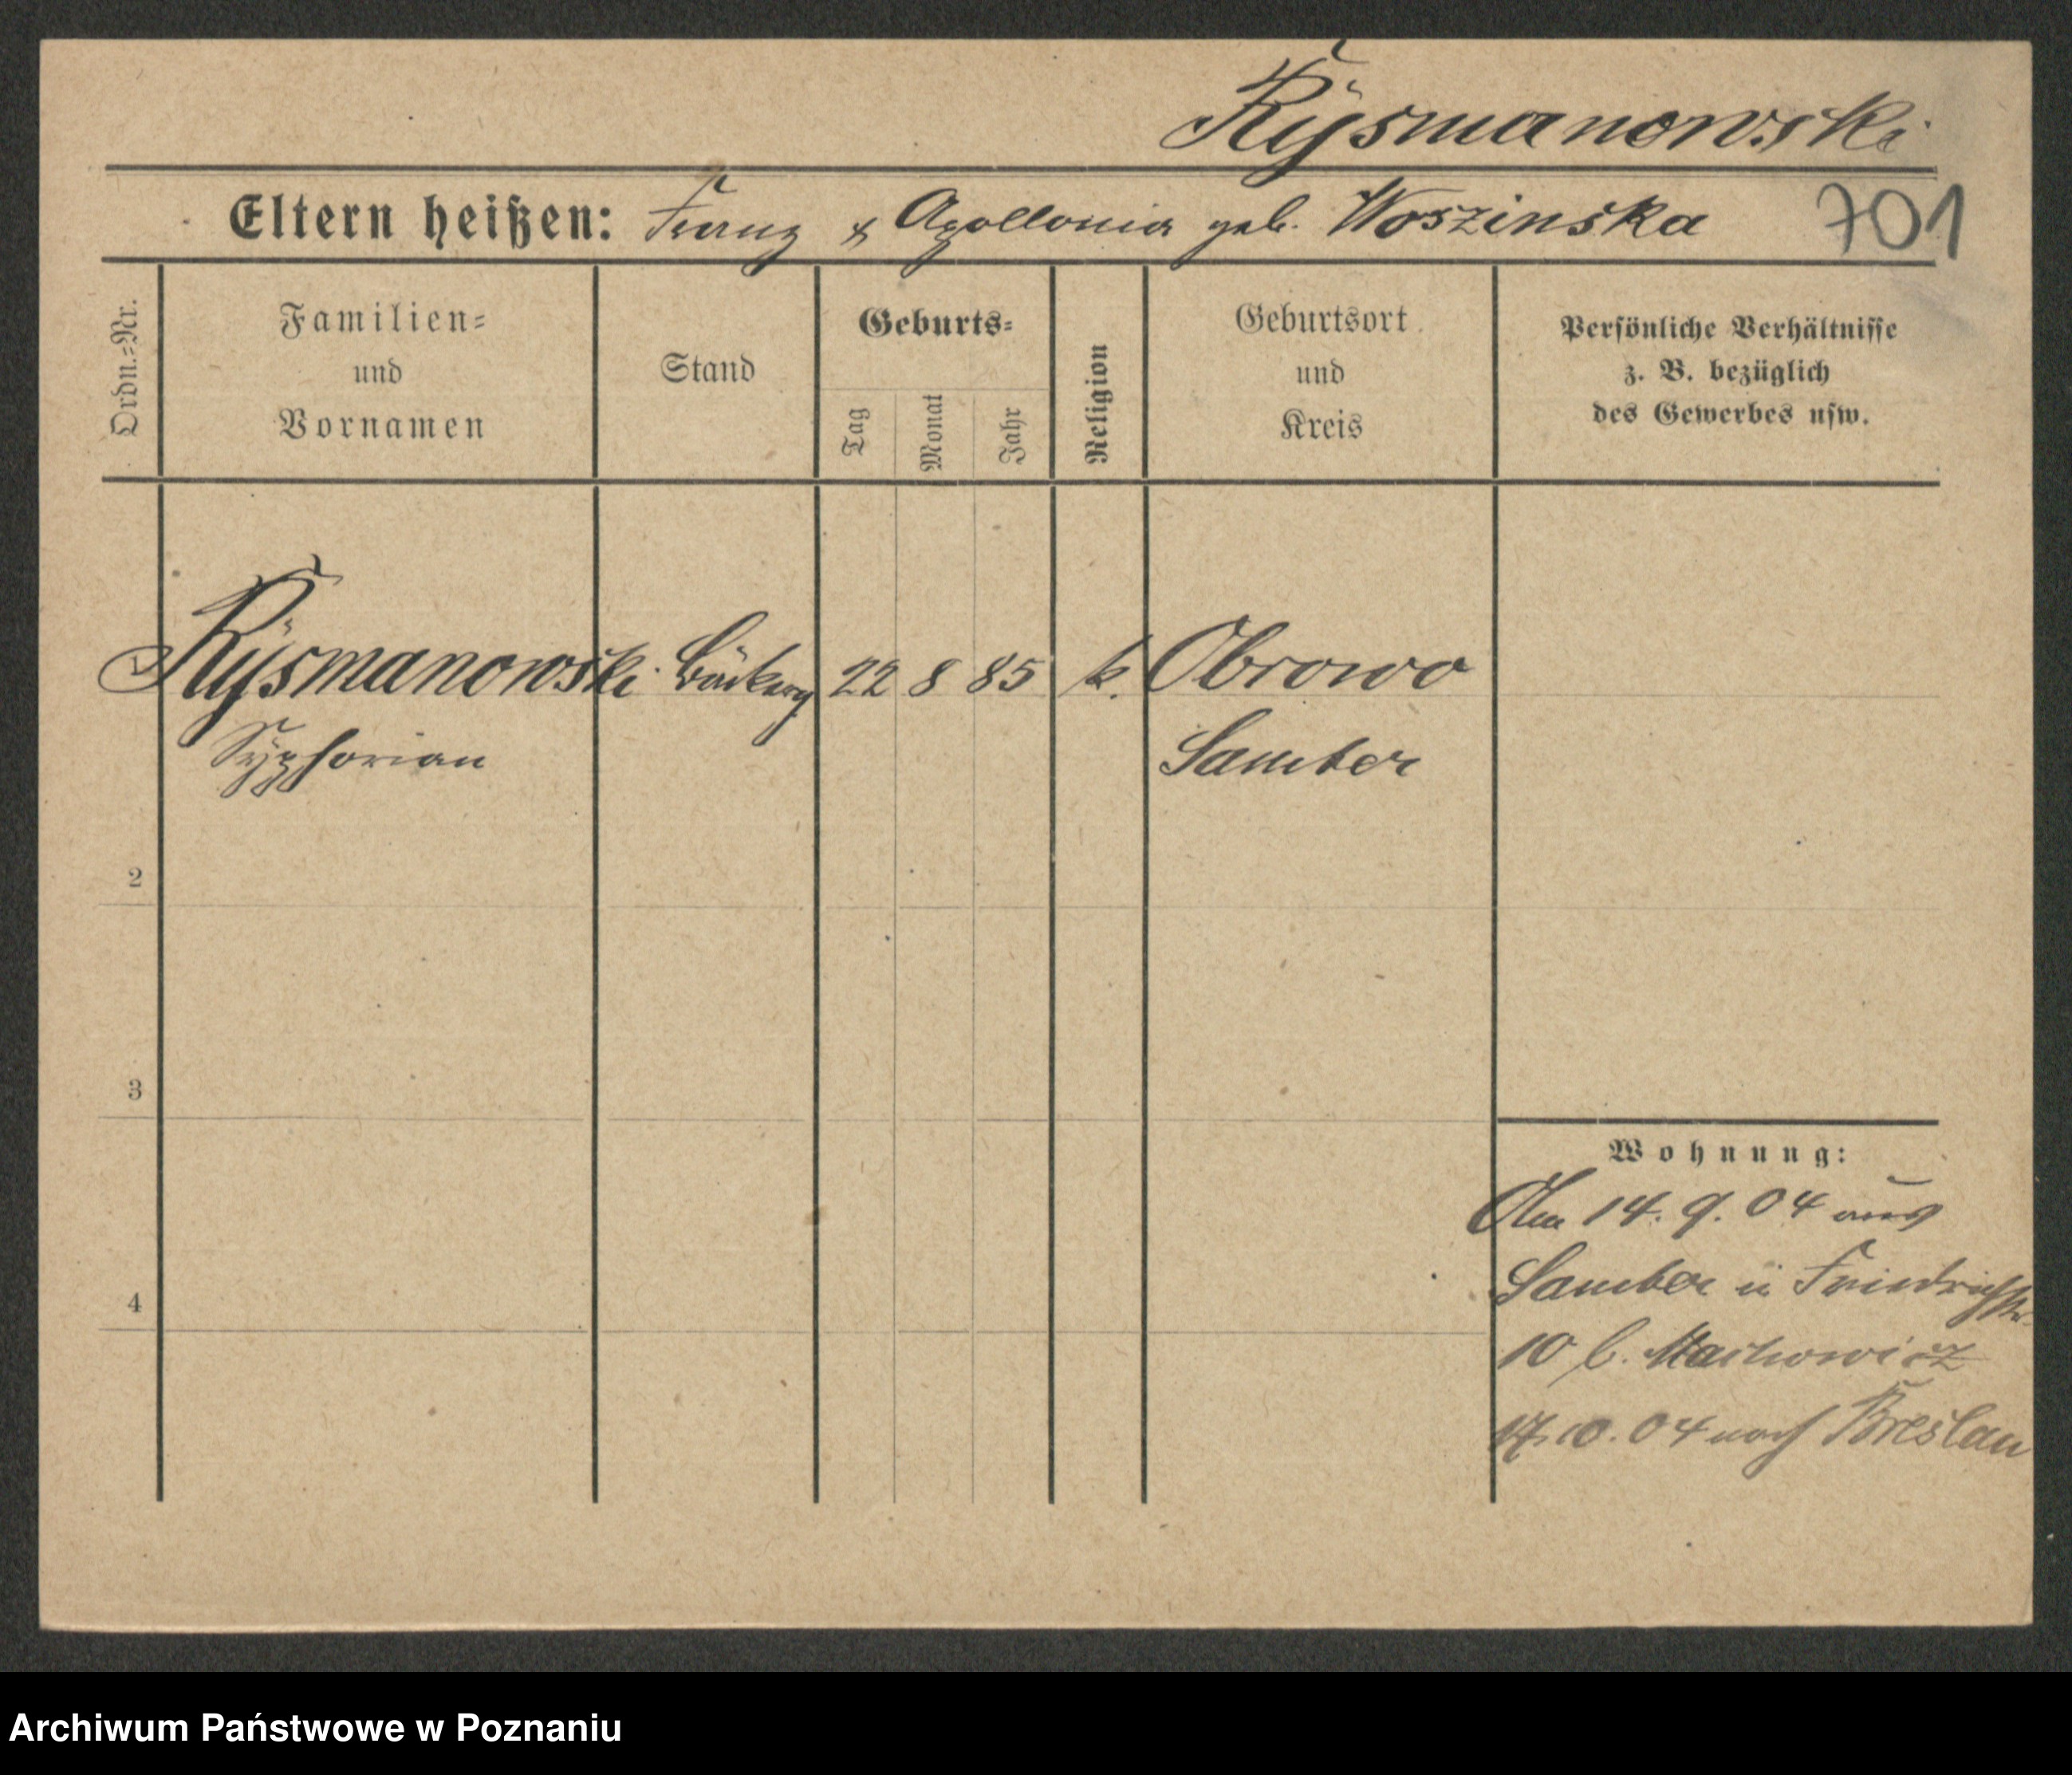 Rÿsmanowski
Eltern heißen: Franz & Apollonia geb. Woszinska 701
Ordn.=Nr.
Familien=
und
Vornamen
Stand
Geburts=
Tag
Monat
Jahr
Religion
Geburtsort
und
Kreis
Persönliche Verhältnisse
z. B. bezüglich
des Gewerbes usw.
1 Rÿsmanowski Bäckerg 22 8 85 k. Obrowo
Sÿphorian Samter
2
3
4
Wohnung:
14. 9. 04 aus
Samter Friedrichstr.
10 b.
10. 04 nach Breslau
Archiwum Państwowe w Poznaniu